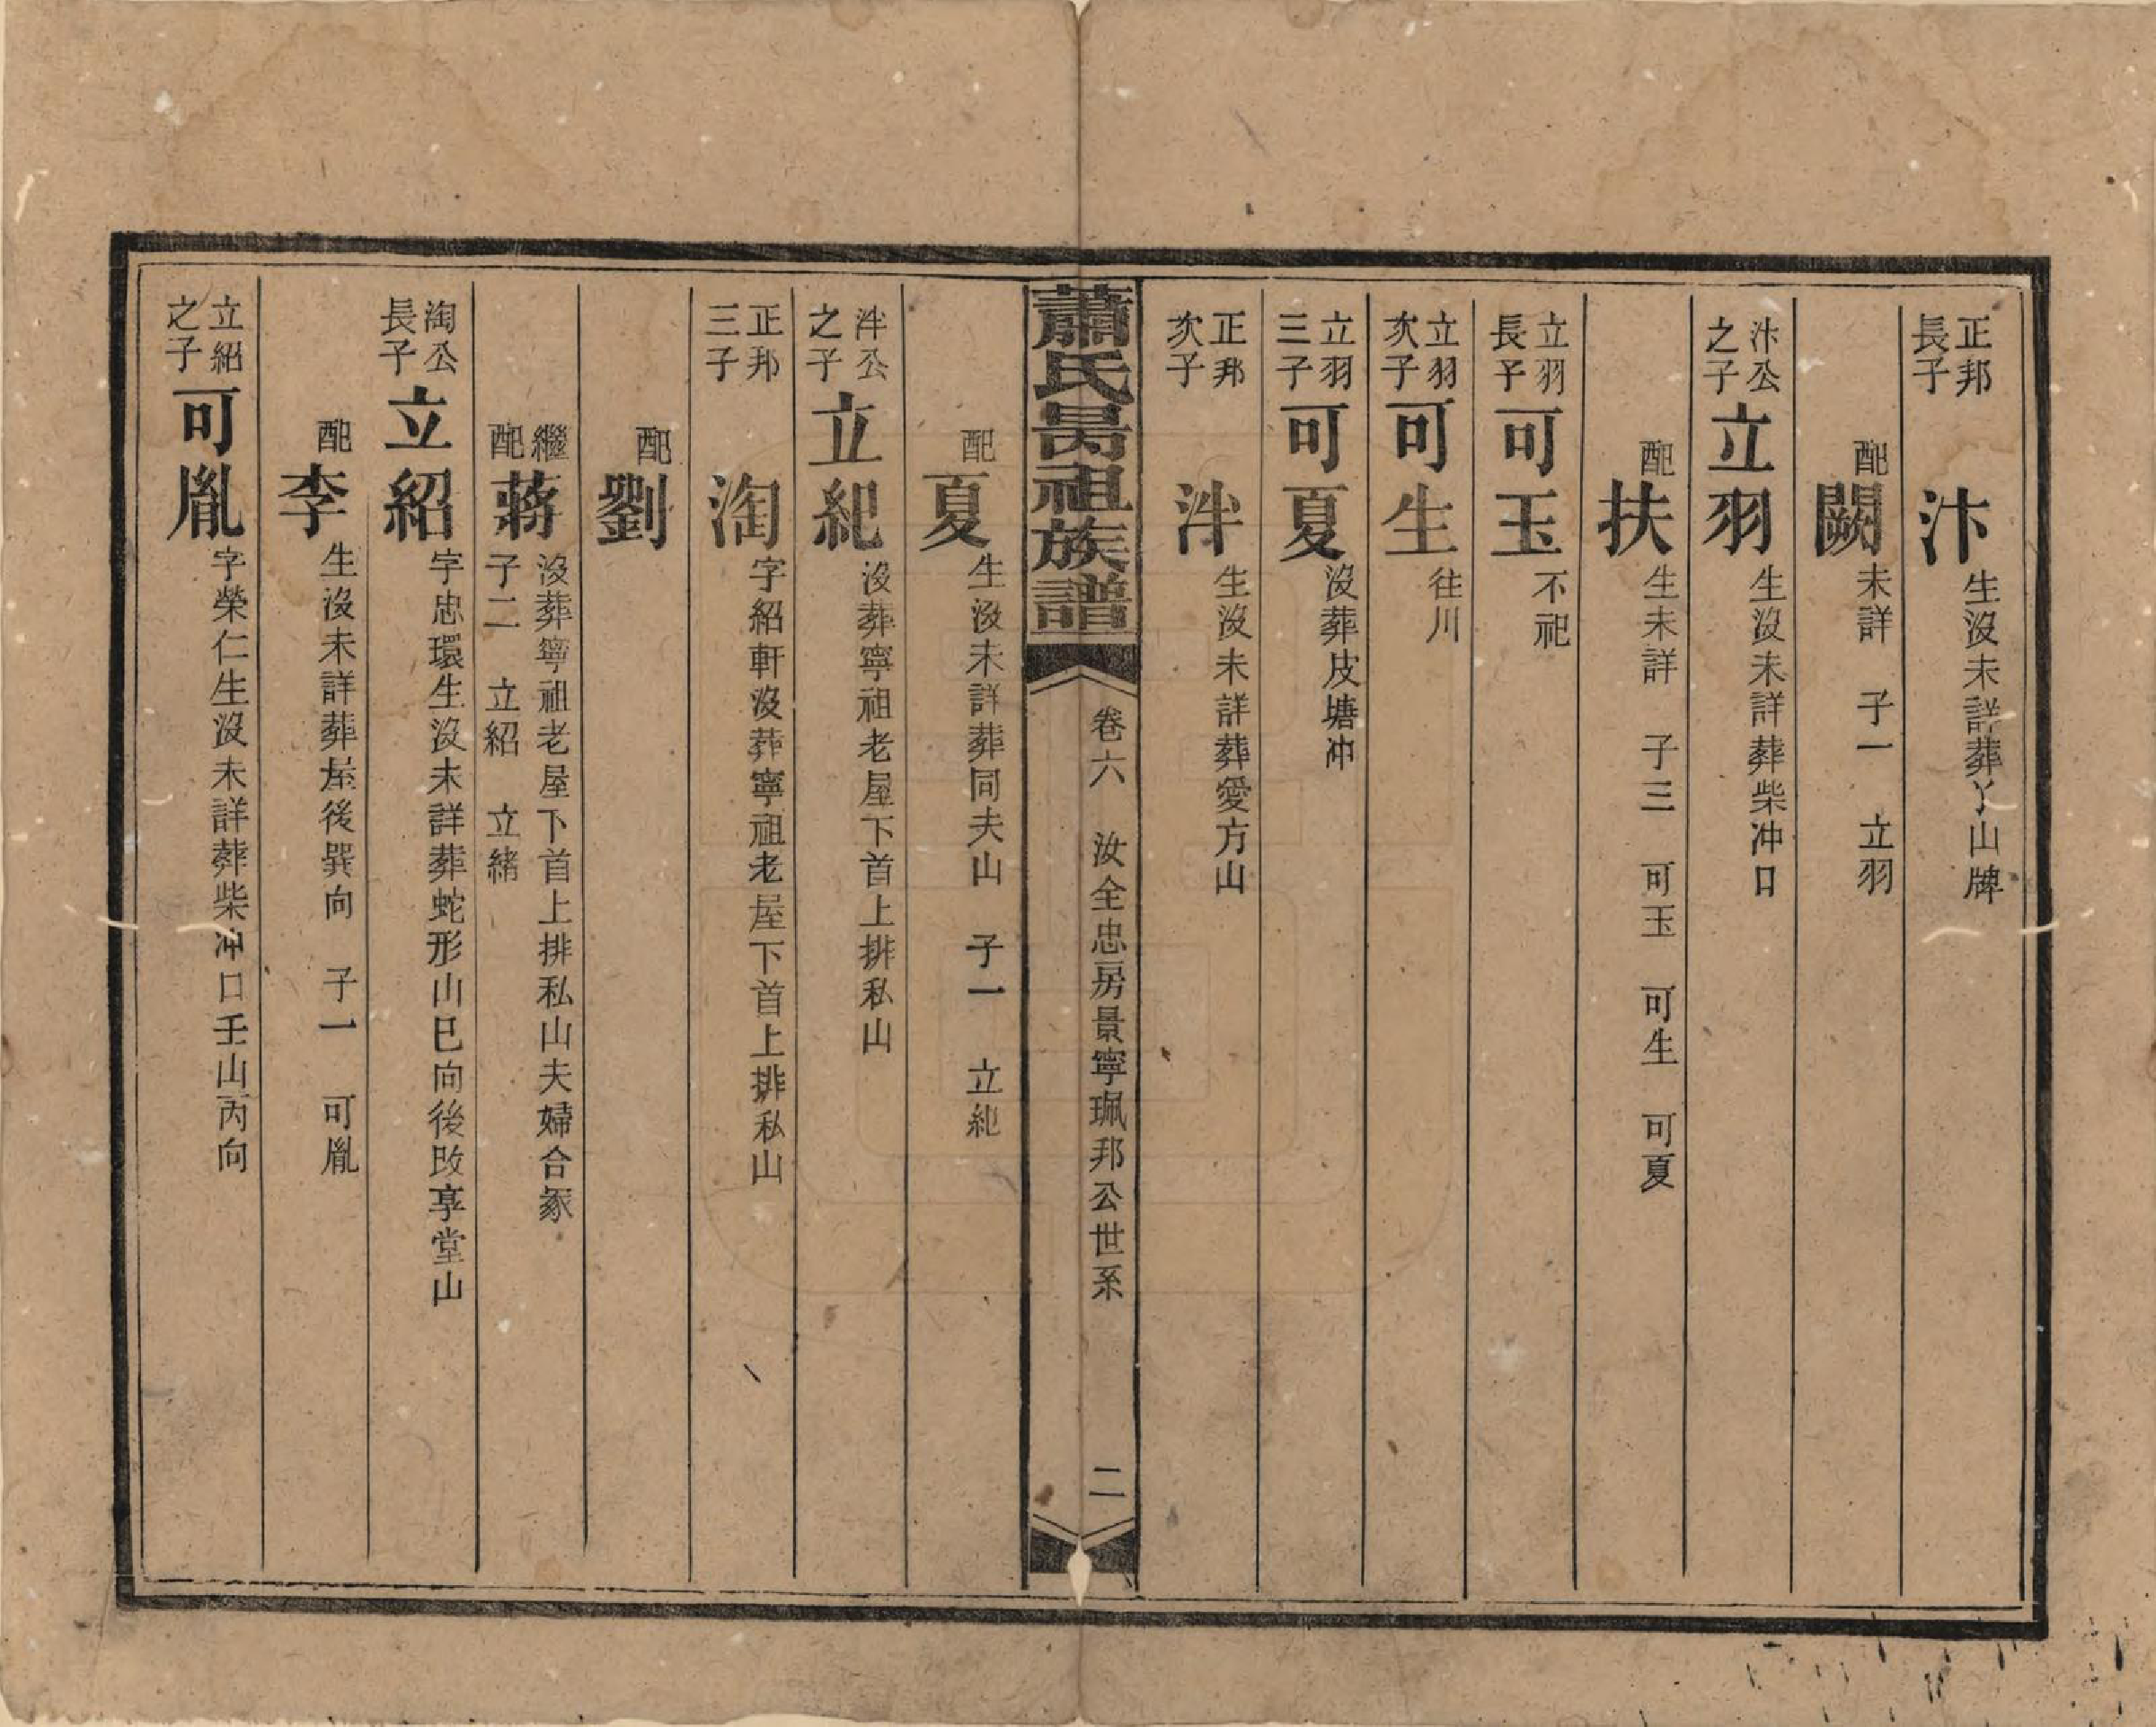 正邦長子 汴 生沒未詳葬丫山牌
配 闕 未詳 子一 立羽
汴公之子 立羽 生沒未詳葬柴冲口
配 扶 生未詳 子三 可玉 可生 可夏
立羽長子 可玉 不祀
立羽次子 可生 往川
立羽三子 可夏 沒葬皮塘冲
正邦次子 泮 生沒未詳葬愛方山
蕭氏昺祖族譜 卷六 汝全忠房景寧珮邦公世系 二
配 夏 生沒未詳葬同夫山 子一 立紀
泮公之子 立紀 沒葬寧祖老屋下首上排私山
正邦三子 淘 字紹軒沒葬寧祖老屋下首上排私山
配 劉
繼配 蔣 沒葬寧祖老屋下首上排私山夫婦合冢
子二 立紹 立緒
淘公長子 立紹 字忠環生沒未詳葬蛇形山巳向後改享堂山
配 李 生沒未詳葬屋後巽向 子一 可胤
立紹之子 可胤 字榮仁生沒未詳葬柴冲口壬山丙向